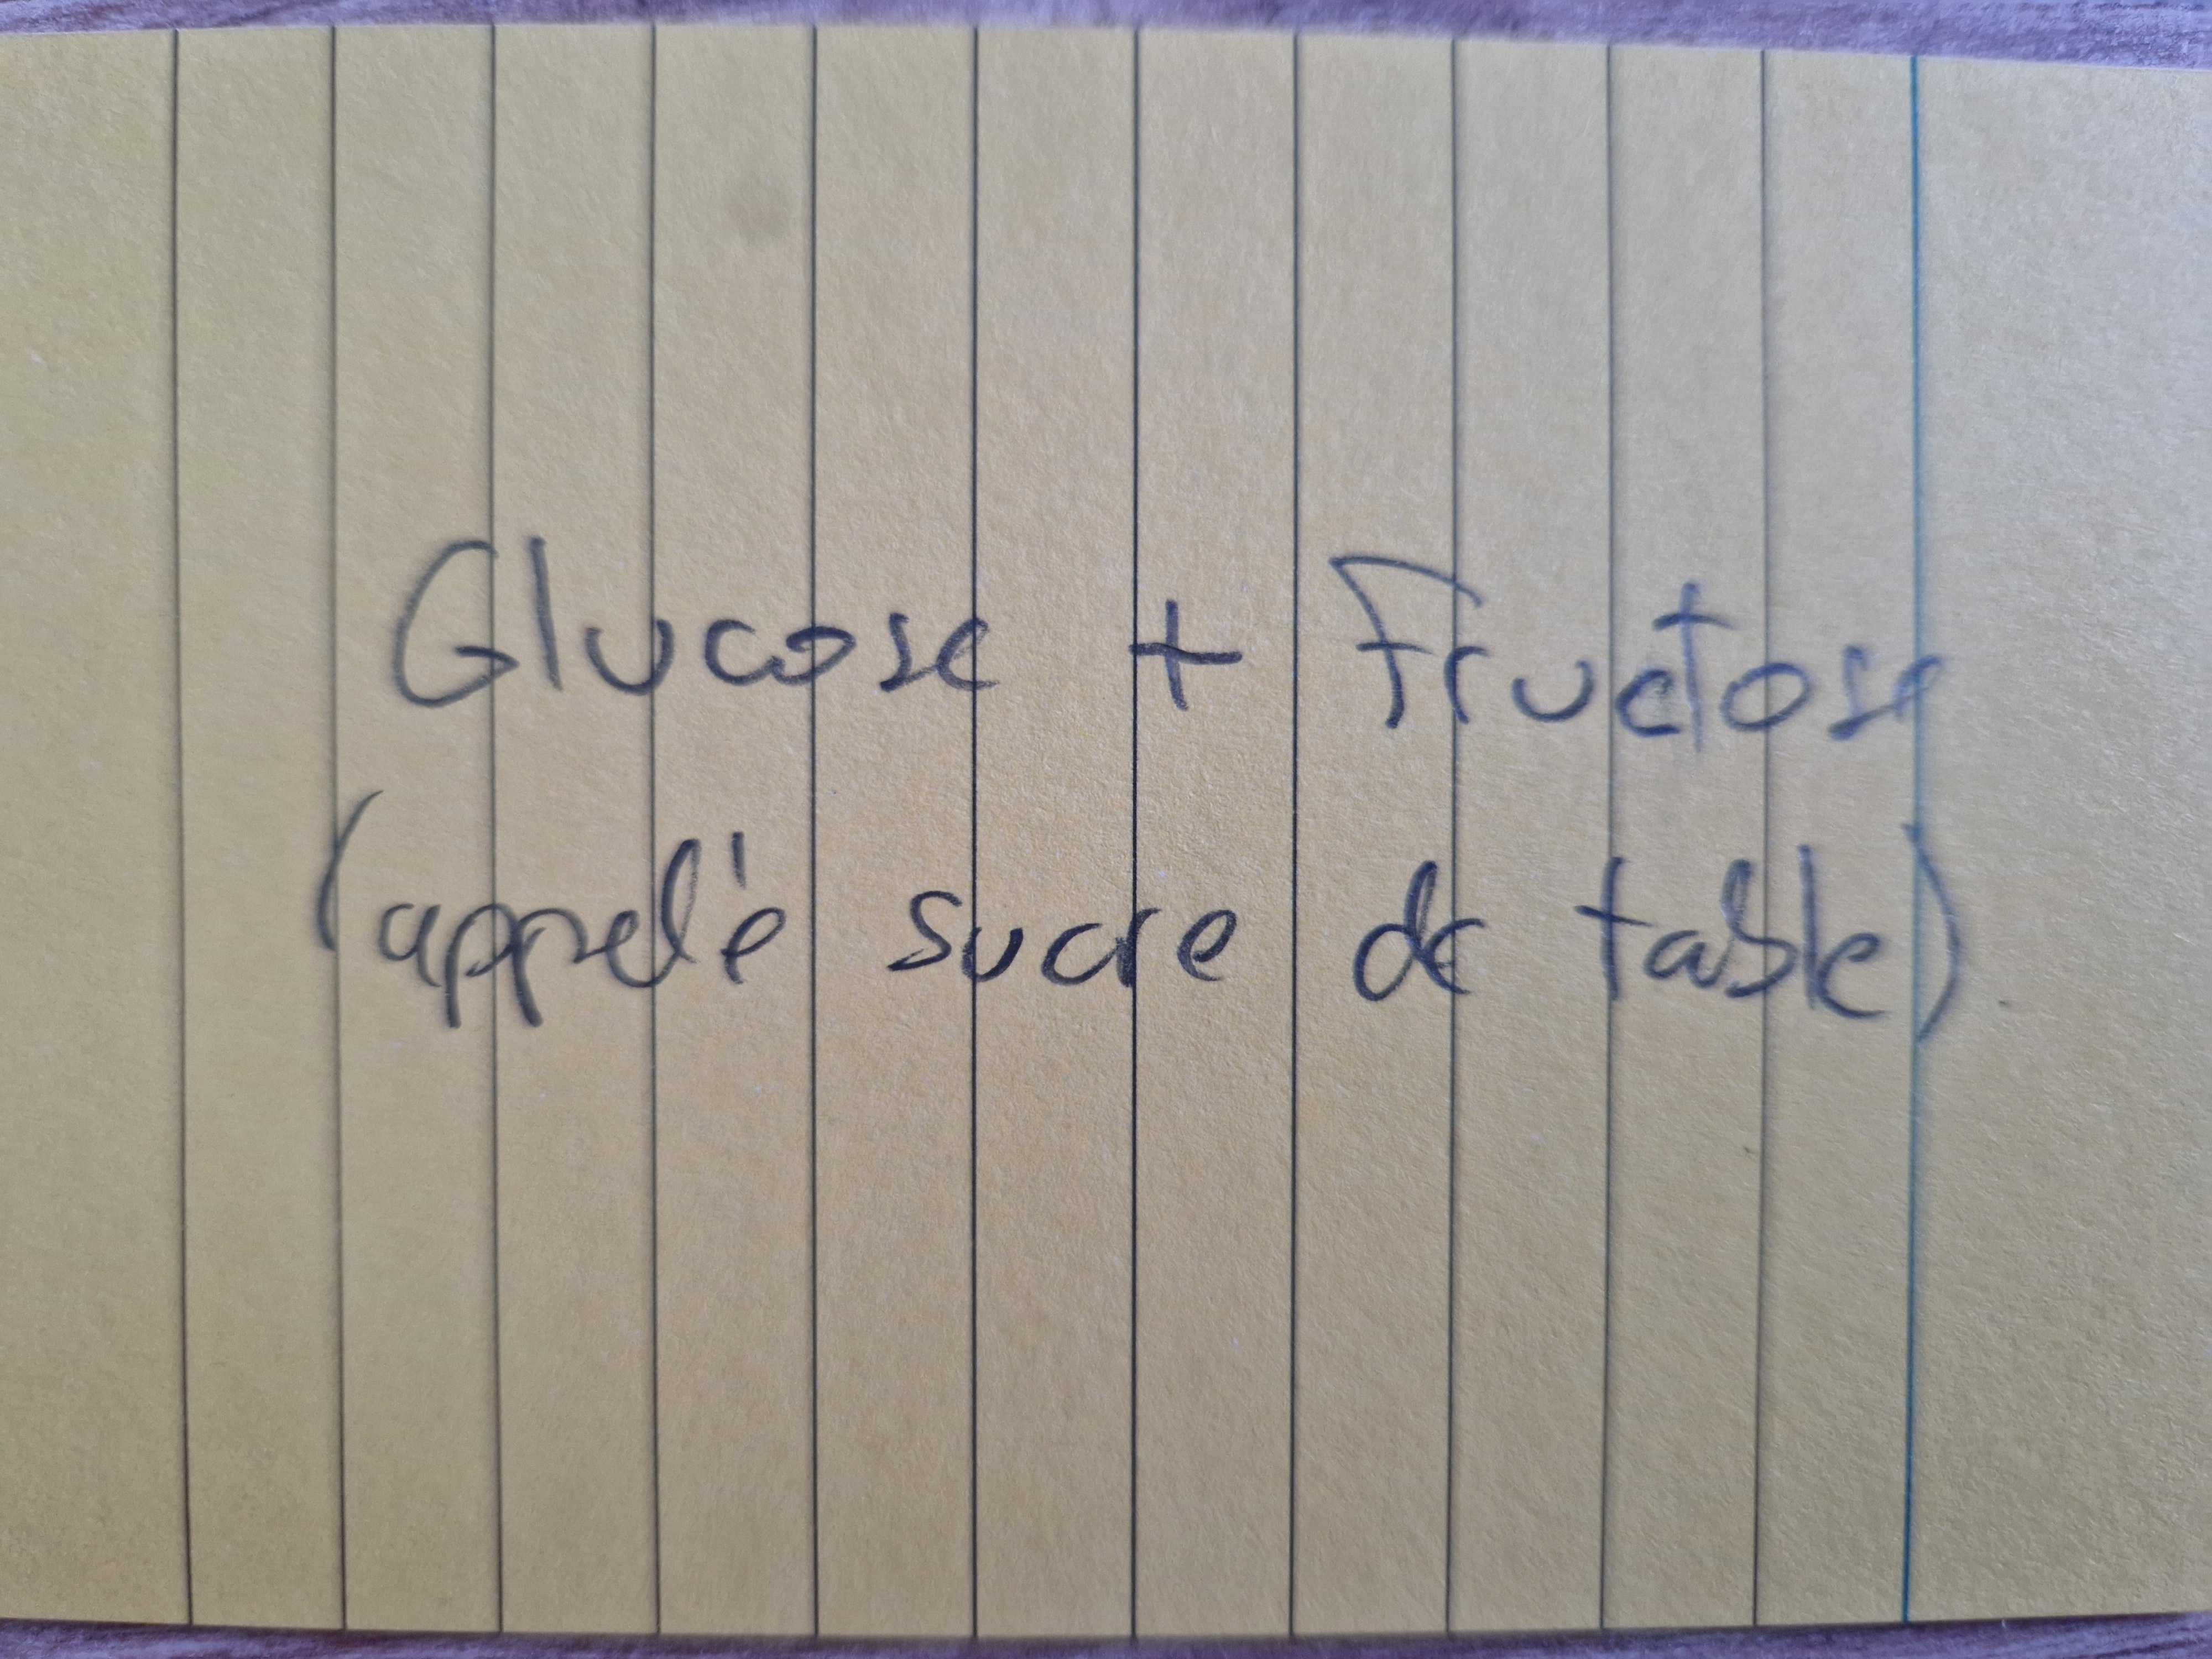 Glucose + Fructose
(appelé sucre de table)